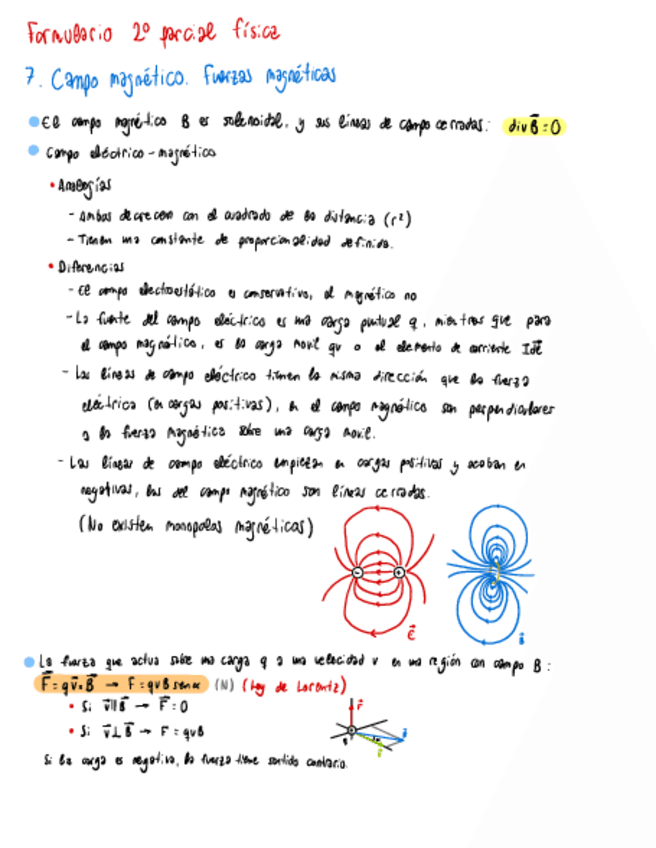 Formulario 2º parcial física
7. Campo magnético. Fuerzas magnéticas
El campo magnético B es solenoidal, y sus líneas de campo cerradas: div B⃗ = 0
Campo eléctrico-magnético
• Analogías
- Ambas decrecen con el cuadrado de la distancia (r²)
- Tienen una constante de proporcionalidad definida.
• Diferencias
- El campo electrostático es conservativo, el magnético no
- La fuente del campo eléctrico es una carga puntual q, mientras que para
el campo magnético, es la carga movil qv o el elemento de corriente Idl⃗
- Las líneas de campo eléctrico tienen la misma dirección que la fuerza
eléctrica (en cargas positivas), en el campo magnético son perpendiculares
a la fuerza magnética sobre una carga movil.
- Las líneas de campo eléctrico empiezan en cargas positivas y acaban en
negativas, las del campo magnético son líneas cerradas.
(No existen monopolos magnéticos)
- +
E⃗
B⃗
La fuerza que actua sobre una carga q a una velocidad v en una región con campo B:
F⃗ = q v⃗ × B⃗ → F = qvB sen α (N) (Ley de Lorentz)
• Si v⃗ ∥ B⃗ → F⃗ = 0
• Si v⃗ ⊥ B⃗ → F = qvB
F⃗
Si la carga es negativa, la fuerza tiene sentido contrario.